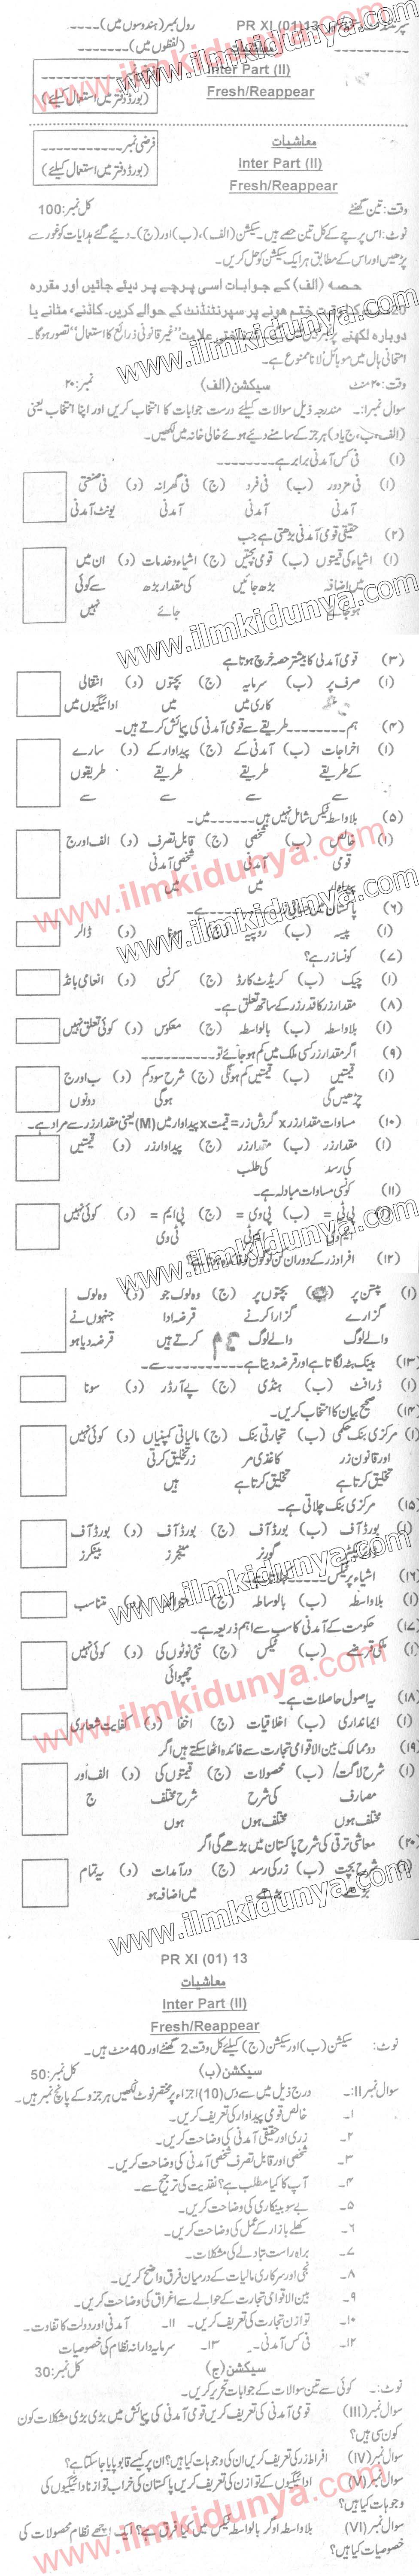 PR XI (01) 13 رول نمبر (ہندسوں میں) ۔۔۔۔
(لفظوں میں) ۔۔۔۔۔۔۔
معاشیات
Inter Part (II)
(بورڈ دفتر میں استعمال کیلئے)
Fresh/Reappear
معاشیات
فرضی نمبر ۔۔۔۔۔۔۔۔۔
Inter Part (II)
(بورڈ دفتر میں استعمال کیلئے)
Fresh/Reappear
وقت: تین گھنٹے کل نمبر: 100
نوٹ: اس پرچے کے کل تین حصے ہیں۔ سیکشن (الف)، (ب) اور (ج)۔ دیئے گئے ہدایات کو غور سے
پڑھیں اور اس کے مطابق ہر ایک سیکشن کو حل کریں۔
حصہ (الف) کے جوابات اسی پرچے پر دیئے جائیں اور مقررہ
20 ختم ہونے پر سپرنٹنڈنٹ کے حوالے کریں۔ کاٹنے، مٹانے یا
دوبارہ لکھنے علامت "غیر قانونی ذرائع کا استعمال" تصور ہوگا۔
امتحانی ہال میں موبائل لانا ممنوع ہے۔
وقت: ۲۰ منٹ سیکشن (الف) نمبر: ۲۰
سوال نمبر I:۔ مندرجہ ذیل سوالات کیلئے درست جوابات کا انتخاب کریں اور اپنا انتخاب یعنی
(الف، ب، ج یا د) ہر جز کے سامنے دیئے ہوئے خالی خانہ میں لکھیں۔
(۱) فی کس آمدنی برابر ہے۔۔۔۔۔۔۔۔
(ا) فی مزدور (ب) فی فرد (ج) فی گھرانہ (د) فی صنعتی
آمدنی آمدنی آمدنی یونٹ آمدنی
(۲) حقیقی قومی آمدنی بڑھتی ہے جب
(ا) اشیاء کی قیمتوں (ب) قومی بچتیں (ج) اشیاء و خدمات (د) ان میں
میں اضافہ بڑھ جائیں کی مقدار بڑھ سے کوئی
ہو جائے جائے نہیں
(۳) قومی آمدنی کا بیشتر حصہ خرچ ہوتا ہے
(ا) صرف پر (ب) سرمایہ (ج) بچتوں (د) انتقالی
کاری میں میں ادائیگیوں میں
(۴) ہم۔۔۔۔۔۔۔ طریقے سے قومی آمدنی کی پیمائش کرتے ہیں۔
(ا) اخراجات (ب) آمدنی کے (ج) پیداوار کے (د) سارے
کے طریقے طریقے طریقے طریقوں
سے سے سے سے
(۵) بلاواسطہ ٹیکس شامل نہیں ہیں۔۔۔۔۔۔ میں۔
(ا) خالص (ب) شخصی (ج) قابل تصرف (د) الف اور ج
قومی آمدنی شخصی آمدنی
میں میں
(۶) پاکستان میں ۔۔۔۔۔ ہے۔
(ا) پیسہ (ب) روپیہ (ج) سونا (د) ڈالر
(۷) کونسا زر ہے؟
(ا) چیک (ب) کریڈٹ کارڈ (ج) کرنسی (د) انعامی بانڈ
(۸) مقدار زر کا قدر زر کے ساتھ تعلق ہے۔
(ا) بلاواسطہ (ب) بالواسطہ (ج) معکوس (د) کوئی تعلق نہیں
(۹) اگر مقدار زر کسی ملک میں کم ہو جائے تو۔۔۔۔۔۔۔۔
(ا) قیمتیں (ب) قیمتیں کم ہونگی (ج) شرح سود کم (د) ب اور ج
چڑھیں گی ہوگی دونوں
(۱۰) مساوات مقدار زر x گردش زر = قیمت x پیداوار میں (M) یعنی مقدار زر سے مراد ہے۔
(ا) مقدار زر (ب) مقدار زر (ج) پیداوار زر (د) قیمتیں
کی رسد کی طلب
(۱۱) کونسی مساوات مبادلہ ہے۔
(ا) پی ٹی = (ب) پی وی = (ج) پی ایم = (د) کوئی نہیں
ایم وی ایم ٹی ٹی وی
(۱۲) افراط زر کے دوران کن لوگوں کو فائدہ ہوتا ہے؟
(ا) پنشن پر (ب) بچتوں پر (ج) وہ لوگ جو (د) وہ لوگ
گزارے گزارا کرنے قرضہ ادا جنہوں نے
والے لوگ والے لوگ کرتے ہیں قرضہ دیا ہو
(۱۳) بینک بٹہ لگاتا ہے اور قرضہ دیتا ہے۔۔۔۔۔۔۔۔ سے۔
(ا) ڈرافٹ (ب) ہنڈی (ج) پے آرڈر (د) سونا
(۱۴) صحیح بیان کا انتخاب کریں۔
(ا) مرکزی بنک حکمی (ب) تجارتی بنک (ج) مالیاتی کمپنیاں (د) کوئی نہیں
اور قانون زر کاغذی مر زر تخلیق کرتی
تخلیق کرتا ہے تخلیق کرتا ہے ہیں
(۱۵) مرکزی بنک چلاتی ہے۔
(ا) بورڈ آف (ب) بورڈ آف (ج) بورڈ آف (د) بورڈ آف
گورنر منیجرز بینکرز
(۱۶) اشیاء پر ٹیکس۔۔۔۔۔
(ا) بلاواسطہ (ب) بالواسطہ (ج) (د) متناسب
(۱۷) حکومت کے آمدنی کا سب سے اہم ذریعہ ہے۔
(ا) ملکی قرضے (ب) ٹیکس (ج) نئی نوٹوں کی (د) کوئی نہیں
چھپوائی
(۱۸) یہ اصول حاصلات ہے۔
(ا) ایمانداری (ب) اخلاقیات (ج) اخفا (د) کفایت شعاری
(۱۹) دو ممالک بین الاقوامی تجارت سے فائدہ اٹھا سکتے ہیں اگر
(ا) شرح لاگت/ (ب) محصولات (ج) قیمتوں کی (د) الف اور
مصارف کی شرح شرح مختلف ج
مختلف ہوں مختلف ہوں ہوں
(۲۰) معاشی ترقی کی شرح پاکستان میں بڑھے گی اگر
(ا) شرح بچت (ب) زر کی رسد (ج) درآمدات (د) یہ تمام
بڑھے بڑھے میں اضافہ ہو
PR XI (01) 13
معاشیات
Inter Part (II)
Fresh/Reappear
نوٹ: سیکشن (ب) اور سیکشن (ج) کیلئے کل وقت 2 گھنٹے اور 40 منٹ ہیں۔
سیکشن (ب) کل نمبر: 50
سوال نمبر II:۔ درج ذیل میں سے دس (10) اجزاء پر مختصر نوٹ لکھیں ہر جزو کے پانچ نمبر ہیں۔
۱۔ خالص قومی پیداوار کی تعریف کریں۔
۲۔ زری اور حقیقی آمدنی کی وضاحت کریں۔
۳۔ شخصی اور قابل تصرف شخصی آمدنی کی وضاحت کریں۔
۴۔ آپ کا کیا مطلب ہے؟ نقدیت کی ترجیح سے۔
۵۔ بے سود بینکاری کی وضاحت کریں۔
۶۔ کھلے بازار کے عمل کی وضاحت کریں۔
۷۔ براہ راست تبادلے کی مشکلات۔
۸۔ نجی اور سرکاری مالیات کے درمیان فرق واضح کریں۔
۹۔ بین الاقوامی تجارت کے حوالے سے اغراق کی وضاحت کریں۔
۱۰۔ توازن تجارت کی تعریف کریں۔ ۱۱۔ آمدنی اور دولت کا تفاوت۔
۱۲۔ فی کس آمدنی۔ ۱۳۔ سرمایہ دارانہ نظام کی خصوصیات
سیکشن (ج) کل نمبر: 30
نوٹ:۔ کوئی سے تین سوالات کے جوابات تحریر کریں۔
سوال نمبر (III) قومی آمدنی کی تعریف کریں قومی آمدنی کی پیمائش میں بڑی بڑی مشکلات کون
کون سی ہیں؟
سوال نمبر (IV) افراط زر کی تعریف کریں ان کی وجوہات کیا ہیں؟ ان پر کیسے قابو پایا جا سکتا ہے؟
سوال نمبر (V) ادائیگیوں کے توازن کی تعریف کریں پاکستان کی خراب توازن ادائیگیوں کی
وجوہات کیا ہیں؟
سوال نمبر (VI) بلاواسطہ اور بالواسطہ ٹیکس میں کیا فرق ہے؟ ایک اچھے نظام محصولات کی
خصوصیات کیا ہیں؟
www.ilmkidunya.com